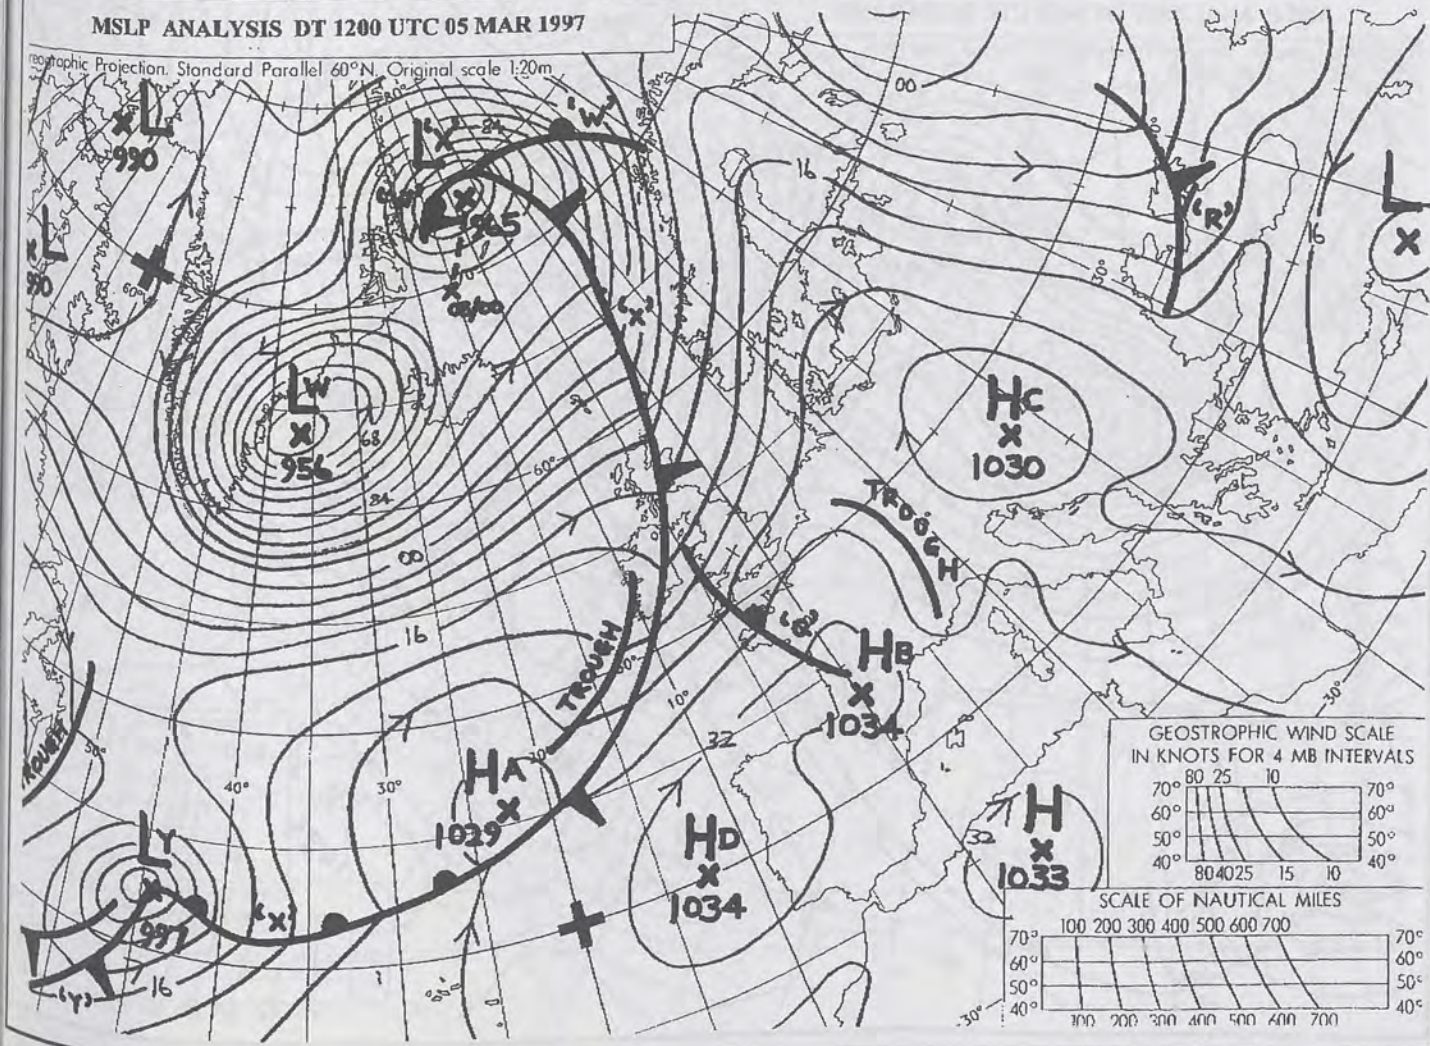 MSLP ANALYSIS DT 1200 UTC 05 MAR 1997
reographic Projection. Standard Parallel 60°N. Original scale 1:20m
L
990
L
990
60°
L 'X'
84
'W'
965
08/00
'X'
00
16
'R'
30°
0°
16
L
LW
956
68
84
60°
00
16
HC
1030
TROUGH
TROUGH
'Q'
HB
1034
10°
32
TROUGH
50°
40°
30°
HA
1029
LY
997
'X'
'Y'
16
HD
1034
H
32
1033
30°
30°
GEOSTROPHIC WIND SCALE
IN KNOTS FOR 4 MB INTERVALS
80 25 10
70° 70°
60° 60°
50° 50°
40° 40°
80 40 25 15 10
SCALE OF NAUTICAL MILES
100 200 300 400 500 600 700
70° 70°
60° 60°
50° 50°
40° 40°
100 200 300 400 500 600 700